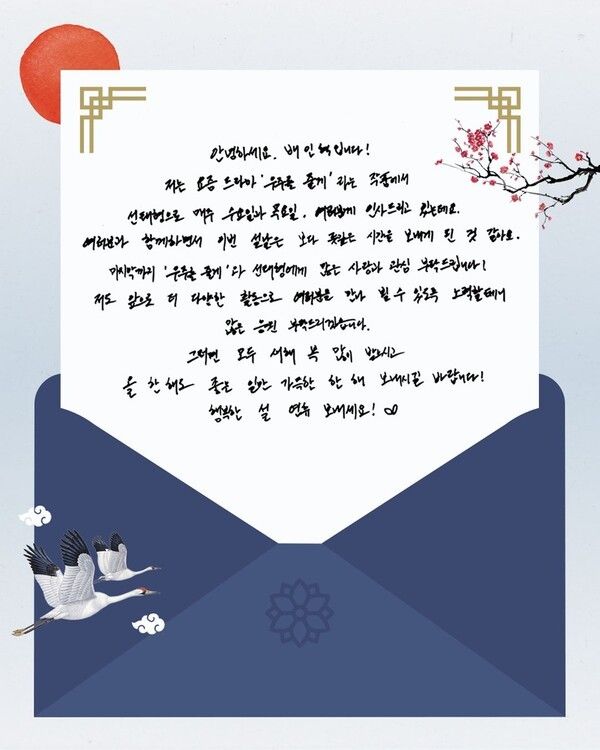 안녕하세요. 배인혁입니다!
저는 요즘 드라마 '우주를 줄게' 라는 작품에서
선태형으로 매주 수요일과 목요일, 여러분께 인사드리고 있는데요.
여러분과 함께하면서 이번 설날은 보다 뜻깊은 시간을 보내게 된 것 같아요.
마지막까지 '우주를 줄게' 와 선태형에게 많은 사랑과 관심 부탁드립니다!
저도 앞으로 더 다양한 활동으로 여러분을 만나 뵐 수 있도록 노력할테니
많은 응원 부탁드리겠습니다.
그러면 모두 새해 복 많이 받으시고
올 한해도 좋은 일만 가득한 한 해 보내시길 바랍니다!
행복한 설 연휴 보내세요!